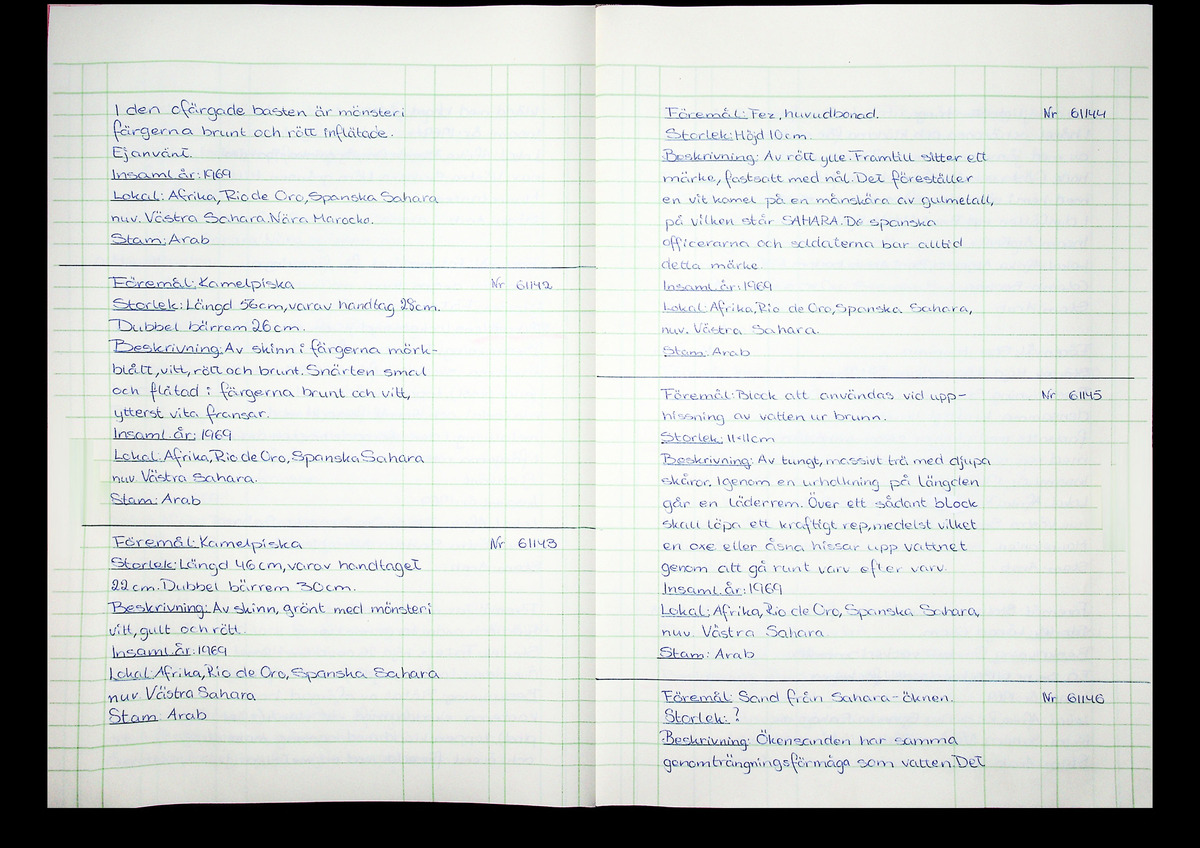 I den ofärgade basten är mönster i
färgerna brunt och rött inflätade.
Ej använt.
Insaml. år: 1969
Lokal: Afrika, Rio de Oro, Spanska Sahara
nuv. Västra Sahara. Nära Marocko.
Stam: Arab
Föremål: Kamelpiska Nr 61142
Storlek: Längd 56cm, varav handtag 28cm.
Dubbel bärrem 26cm.
Beskrivning: Av skinn i färgerna mörk-
blått, vitt, rött och brunt. Snärten smal
och flätad i färgerna brunt och vitt,
ytterst vita fransar.
Insaml. år: 1969
Lokal: Afrika, Rio de Oro, Spanska Sahara
nuv. Västra Sahara.
Stam: Arab
Föremål: Kamelpiska Nr 61143
Storlek: Längd 46cm, varav handtaget
22cm. Dubbel bärrem 30cm.
Beskrivning: Av skinn, grönt med mönster i
vitt, gult och rött.
Insaml. år: 1969
Lokal: Afrika, Rio de Oro, Spanska Sahara
nuv Västra Sahara
Stam Arab
Föremål: Fez, huvudbonad. Nr 61144
Storlek: Höjd 10cm.
Beskrivning: Av rött ylle. Framtill sitter ett
märke, fastsatt med nål. Det föreställer
en vit kamel på en månskära av gulmetall,
på vilken står SAHARA. De spanska
officerarna och soldaterna bar alltid
detta märke.
Insaml. år: 1969
Lokal: Afrika, Rio de Oro, Spanska Sahara,
nuv. Västra Sahara.
Stam: Arab
Föremål: Block att användas vid upp- Nr 61145
hissning av vatten ur brunn.
Storlek: 11×11cm
Beskrivning: Av tungt, massivt trä med djupa
skåror. Igenom en urholkning på längden
går en läderrem. Över ett sådant block
skall löpa ett kraftigt rep, medelst vilket
en oxe eller åsna hissar upp vattnet
genom att gå runt varv efter varv.
Insaml. år: 1969
Lokal: Afrika, Rio de Oro, Spanska Sahara,
nuv. Västra Sahara
Stam: Arab
Föremål: Sand från Sahara-öknen. Nr 61146
Storlek: ?
Beskrivning: Ökensanden har samma
genomträngningsförmåga som vatten. Det